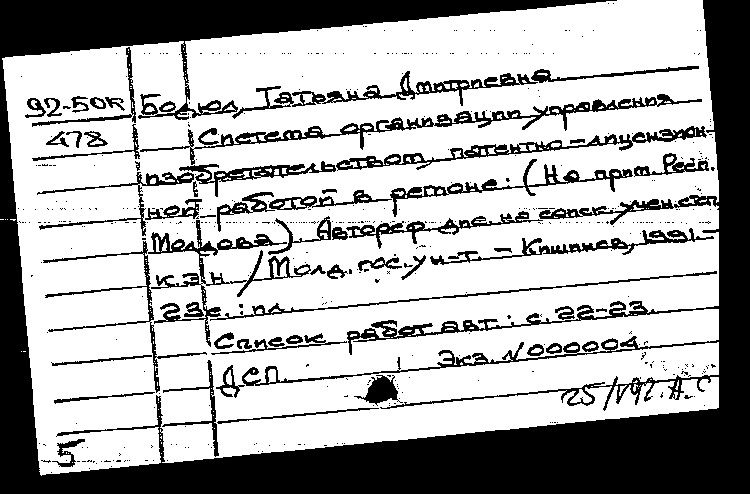 92-50к Бодюл, Татьяна Дмитриевна
478 Система организации управления
изобретательством, патентно-лицензион-
ной работой в регионе: (На прим. Респ.
Молдова). Автореф дис. на соиск. учен. степ
к.э.н /Молд. гос. ун-т. - Кишинев, 1991.-
23с. : ил.
Список работ авт.: с. 22-23.
ДСП. Экз. N 000004.
25/V92. А.С
5